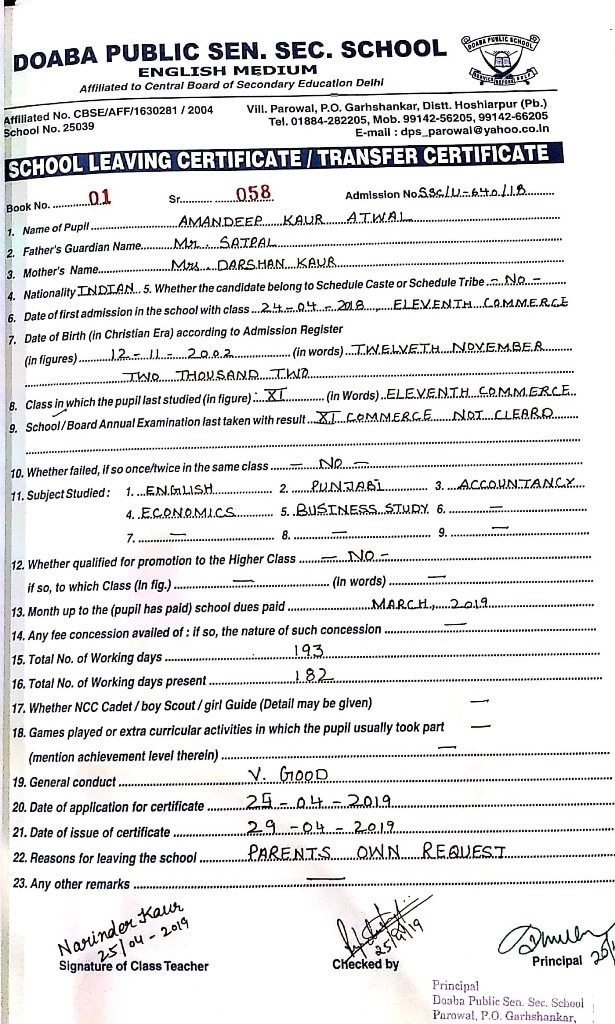 DOABA PUBLIC SCHOOL
DOABA PUBLIC SEN. SEC. SCHOOL
ENGLISH MEDIUM
Affiliated to Central Board of Secondary Education Delhi
Affiliated No. CBSE/AFF/1630281 / 2004
School No. 25039
Vill. Parowal, P.O. Garhshankar, Distt. Hoshiarpur (Pb.)
Tel. 01884-282205, Mob. 99142-56205, 99142-66205
E-mail : dps_parowal@yahoo.co.in
SCHOOL LEAVING CERTIFICATE / TRANSFER CERTIFICATE
Book No. 01 Sr. 058 Admission No SSC/U-640/18
1. Name of Pupil AMANDEEP KAUR ATWAL
2. Father's Guardian Name Mr. SATPAL
3. Mother's Name Mrs DARSHAN KAUR
4. Nationality INDIAN 5. Whether the candidate belong to Schedule Caste or Schedule Tribe - No -
6. Date of first admission in the school with class 24-04-2018 ELEVENTH COMMERCE
7. Date of Birth (in Christian Era) according to Admission Register
(in figures) 12-11-2002 (in words) TWELVETH NOVEMBER
TWO THOUSAND TWO
8. Class in which the pupil last studied (in figure) : XI (in Words) ELEVENTH COMMERCE
9. School/Board Annual Examination last taken with result XI COMMERCE NOT CLEARD
10. Whether failed, if so once/twice in the same class - No -
11. Subject Studied : 1. ENGLISH 2. PUNJABI 3. ACCOUNTANCY
4. ECONOMICS 5. BUSINESS STUDY 6. -
7. - 8. - 9. -
12. Whether qualified for promotion to the Higher Class - NO -
if so, to which Class (In fig.) - (In words) -
13. Month up to the (pupil has paid) school dues paid MARCH, 2019
14. Any fee concession availed of : if so, the nature of such concession -
15. Total No. of Working days 193
16. Total No. of Working days present 182
17. Whether NCC Cadet / boy Scout / girl Guide (Detail may be given) -
18. Games played or extra curricular activities in which the pupil usually took part -
(mention achievement level therein) -
19. General conduct V. GOOD
20. Date of application for certificate 25-04-2019
21. Date of issue of certificate 29-04-2019
22. Reasons for leaving the school PARENTS OWN REQUEST
23. Any other remarks -
Narinder Kaur
25/04-2019
Signature of Class Teacher
Checked by
Principal
Principal
Doaba Public Sen. Sec. School
Parowal, P.O. Garhshankar,